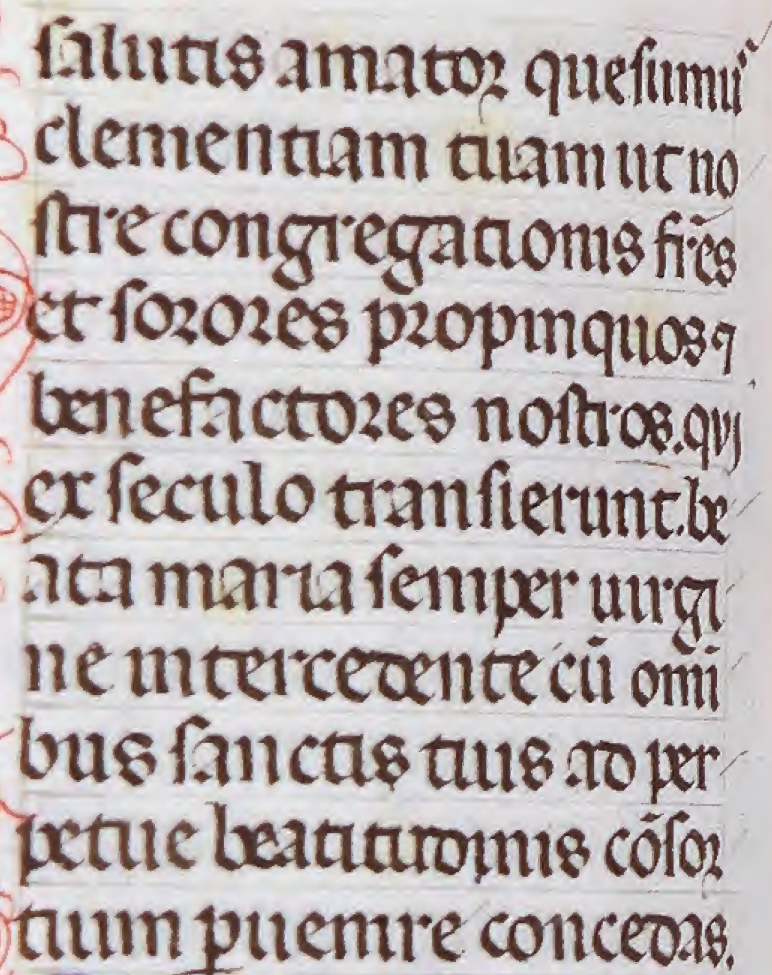 salutis amator quesumuˢ
clementiam tuam ut no
stre congregationis fr̄es
et sorores propinquos ꝯ
benefactores nostros. qui
ex seculo transierunt. be
ata maria semper uirgi
ne intercedente cū om̄i
bus sanctis tuis ad per
petue beatitudinis cōsor
tium ꝑuenire concedas.